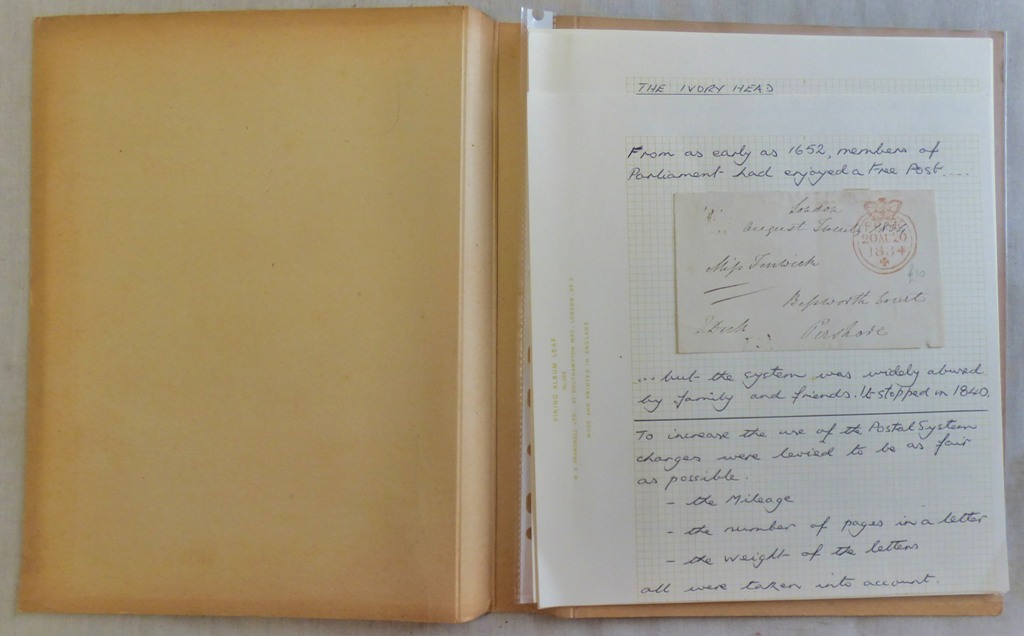 THE IVORY HEAD
From as early as 1652, members of
Parliament had enjoyed a Free Post....
London
August Twenty 1834
FREE
20AU20
1834
Miss
£10
Court
Pershore
...but the system was widely abused
by family and friends. It stopped in 1840.
To increase the use of the Postal System
charges were levied to be as fair
as possible.
- the Mileage
- the number of pages in a letter
- the weight of the letters
all were taken into account.
VIKING ALBUM LEAF
MADE AND PRINTED IN ENGLAND